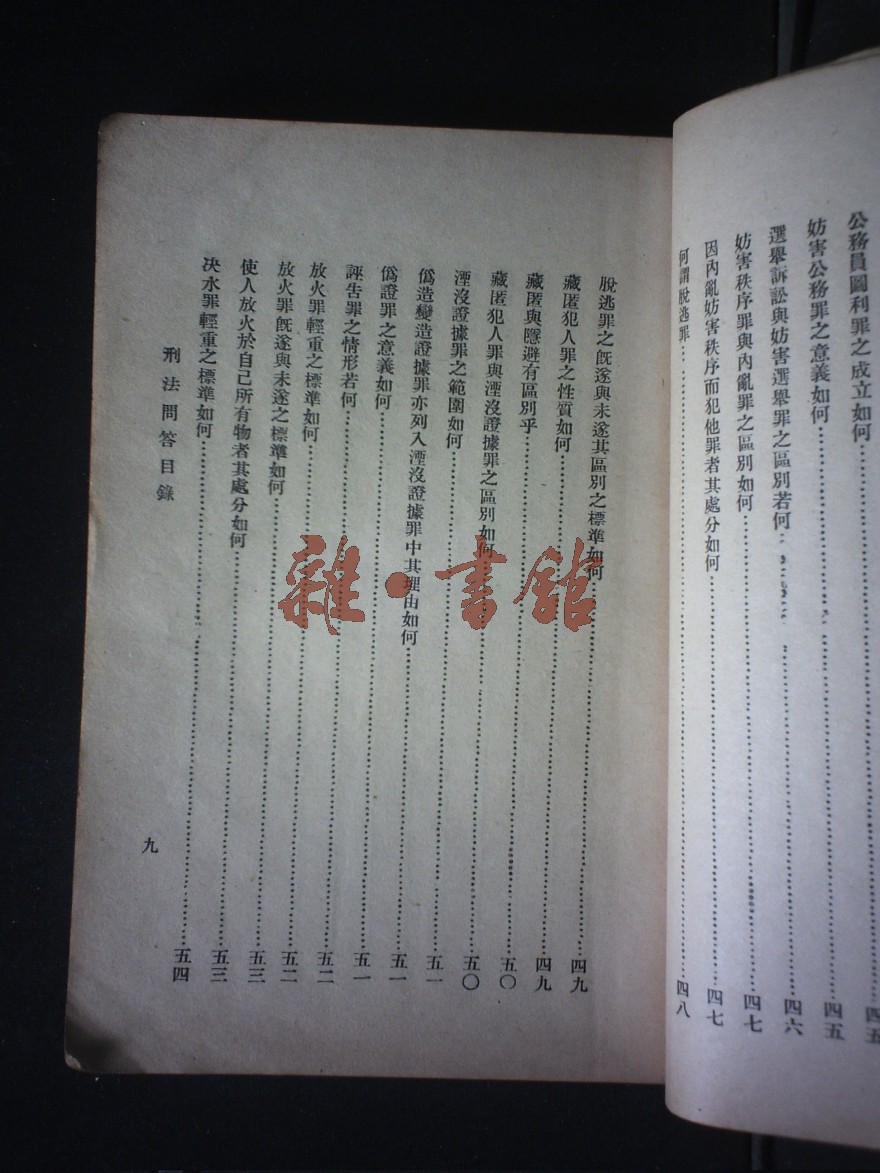 公務員圖利罪之成立如何……四五
妨害公務罪之意義如何……四五
選舉訴訟與妨害選舉罪之區別若何……四六
妨害秩序罪與內亂罪之區別如何……四七
因內亂妨害秩序而犯他罪者其處分如何……四七
何謂脫逃罪……四八
脫逃罪之既遂與未遂其區別之標準如何……四九
藏匿犯人罪之性質如何……四九
藏匿與隱避有區別乎……五〇
藏匿犯人罪與湮沒證據罪之區別如何……五〇
湮沒證據罪之範圍如何……五一
僞造變造證據罪亦列入湮沒證據罪中其理由如何……五一
僞證罪之意義如何……五一
誣告罪之情形若何……五二
放火罪輕重之標準如何……五二
放火罪既遂與未遂之標準如何……五三
使人放火於自己所有物者其處分如何……五三
決水罪輕重之標準如何……五四
刑法問答目錄
九
雜·書館